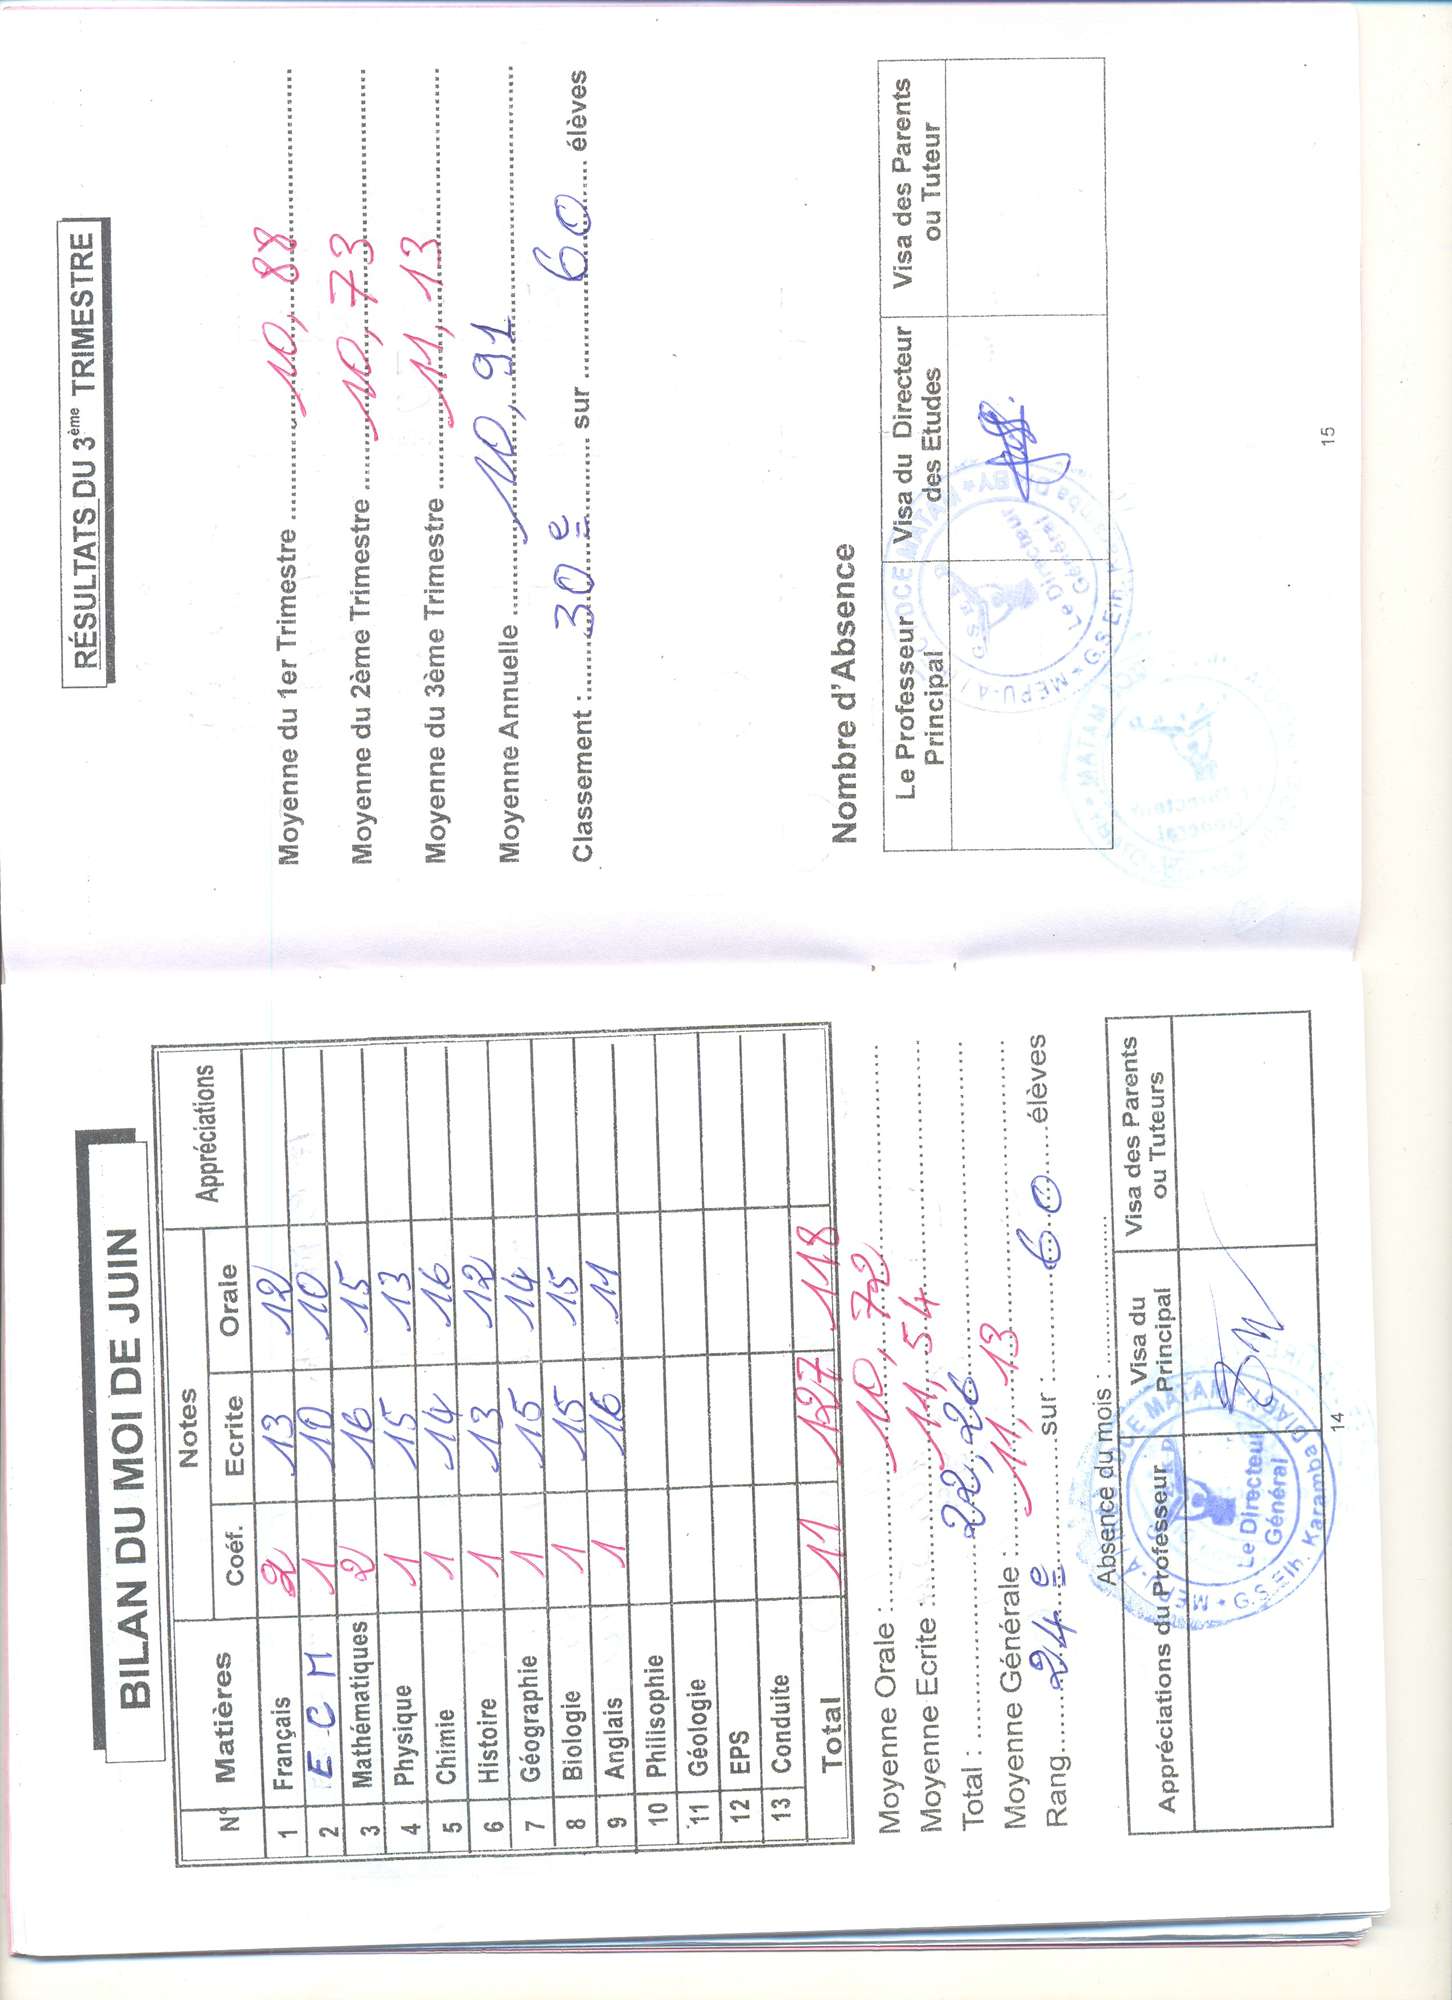 BILAN DU MOI DE JUIN
N° Matières Notes Appréciations
Coéf. Ecrite Orale
1 Français 2 13 12
2 E C M 1 10 10
3 Mathématiques 2 16 15
4 Physique 1 15 13
5 Chimie 1 14 16
6 Histoire 1 13 12
7 Géographie 1 15 14
8 Biologie 1 15 15
9 Anglais 1 16 11
10 Philisophie
11 Géologie
12 EPS
13 Conduite
Total 11 127 118
Moyenne Orale : 10,72
Moyenne Ecrite 11,54
Total : 22,26
Moyenne Générale : 11,13
Rang 24e sur : 60 élèves
Absence du mois :
Appréciations du Professeur Visa du Principal Visa des Parents ou Tuteurs
Le Directeur
Général
G.S.Elh. Karamba
14
RÉSULTATS DU 3ème TRIMESTRE
Moyenne du 1er Trimestre 10,88
Moyenne du 2ème Trimestre 10,73
Moyenne du 3ème Trimestre 11,13
Moyenne Annuelle 10,91
Classement : 30e sur 60 élèves
Nombre d'Absence
Le Professeur Principal Visa du Directeur des Etudes Visa des Parents ou Tuteur
Le Directeur
Général
15